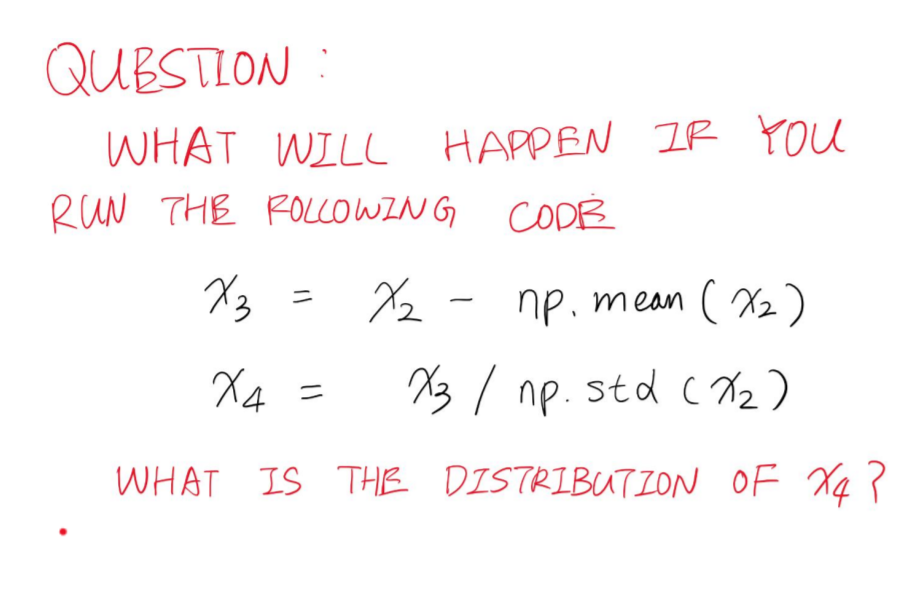 QUESTION :
WHAT WILL HAPPEN IF YOU
RUN THE FOLLOWING CODE
x₃ = x₂ - np.mean(x₂)
x₄ = x₃ / np.std(x₂)
WHAT IS THE DISTRIBUTION OF x₄?